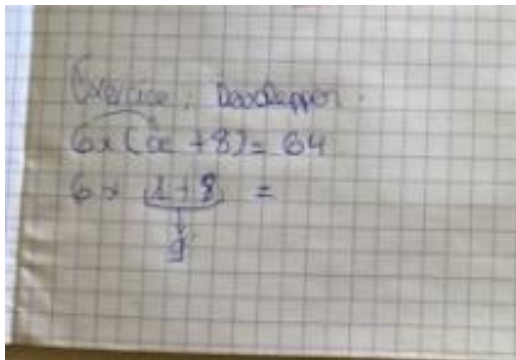 Exercice : Développer.
6x(x +8)= 64
6 x (1+8) =
9